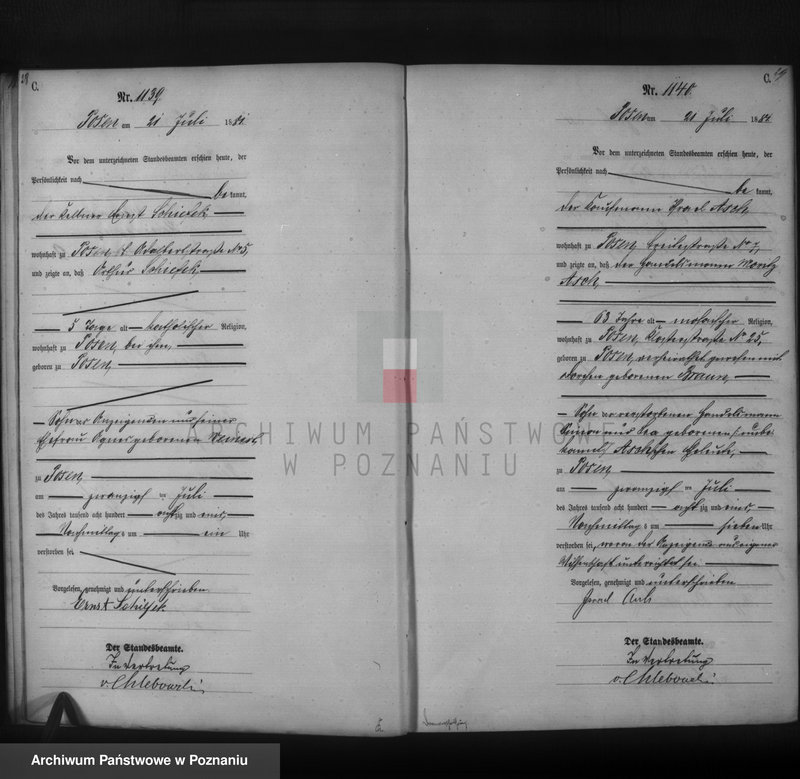 28
C.
Nr. 1139.
Posen am 21 Juli 1881.
Vor dem unterzeichneten Standesbeamten erschien heute, der
Persönlichkeit nach
be kannt,
der Kellner Ernst
wohnhaft zu Posen, St Adalbertstraße No 5,
und zeigte an, daß Arthur
5 Tage alt katholischer Religion,
wohnhaft zu Posen, bei ihm,
geboren zu Posen,
Sohn des Anzeigenden und seiner
Ehefrau Agnes geborenen
zu Posen,
am zwanzigsten Juli
des Jahres tausend acht hundert achtzig und eins,
Nachmittags um ein Uhr
verstorben sei.
Vorgelesen, genehmigt und unterschrieben.
Ernst
Der Standesbeamte.
In Vertretung
v. Chlebowski
C. 29
Nr. 1140.
Posen am 21 Juli 1881.
Vor dem unterzeichneten Standesbeamten erschien heute, der
Persönlichkeit nach
be kannt,
der Kaufmann Israel Asch
wohnhaft zu Posen, Breitestraße No 7,
und zeigte an, daß der Handelsmann Moritz
Asch,
63 Jahre alt mosaischer Religion,
wohnhaft zu Posen, Klosterstraße No 25,
geboren zu Posen, verheirathet gewesen mit
Dorchen geborenen Braun,
Sohn der verstorbenen Handelsmann
und Lea geborenen (:unbe-
kannt:) Asch'schen Eheleute,
zu Posen
am zwanzigsten Juli
des Jahres tausend acht hundert achtzig und eins,
Nachmittags um sieben Uhr
verstorben sei, wovon der Anzeigende aus eigener
Wissenschaft unterrichtet sei.
Vorgelesen, genehmigt und unterschrieben
Israel Asch
Der Standesbeamte.
In Vertretung
v. Chlebowski
ARCHIWUM PAŃSTWOWE
W POZNANIU
Archiwum Państwowe w Poznaniu